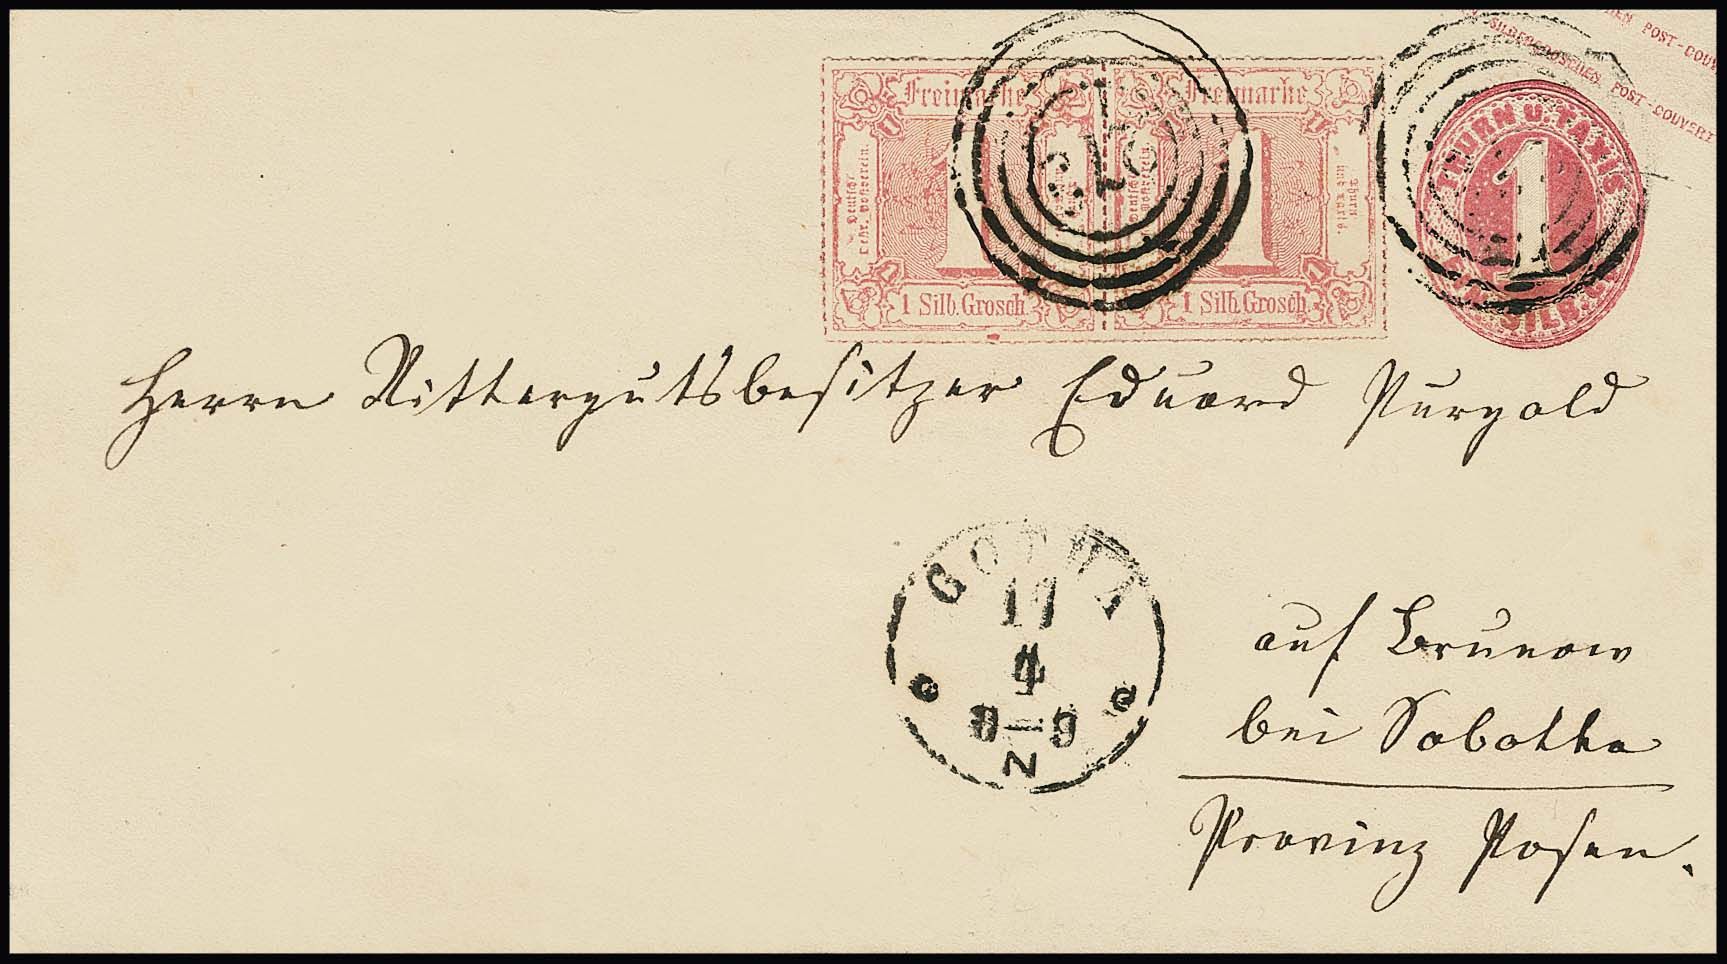 SILBERGROSCHEN POST-COUVERT
POST-COUV
Freimarke Freimarke
1 1
1 Silb. Grosch. 1 Silb. Grosch.
THURN U. TAXIS
1
Herrn Rittergutsbesitzer Eduard Purgold
GOTHA
17
4
8-9
N
auf Brunow
bei Sobotka
Provinz Posen.